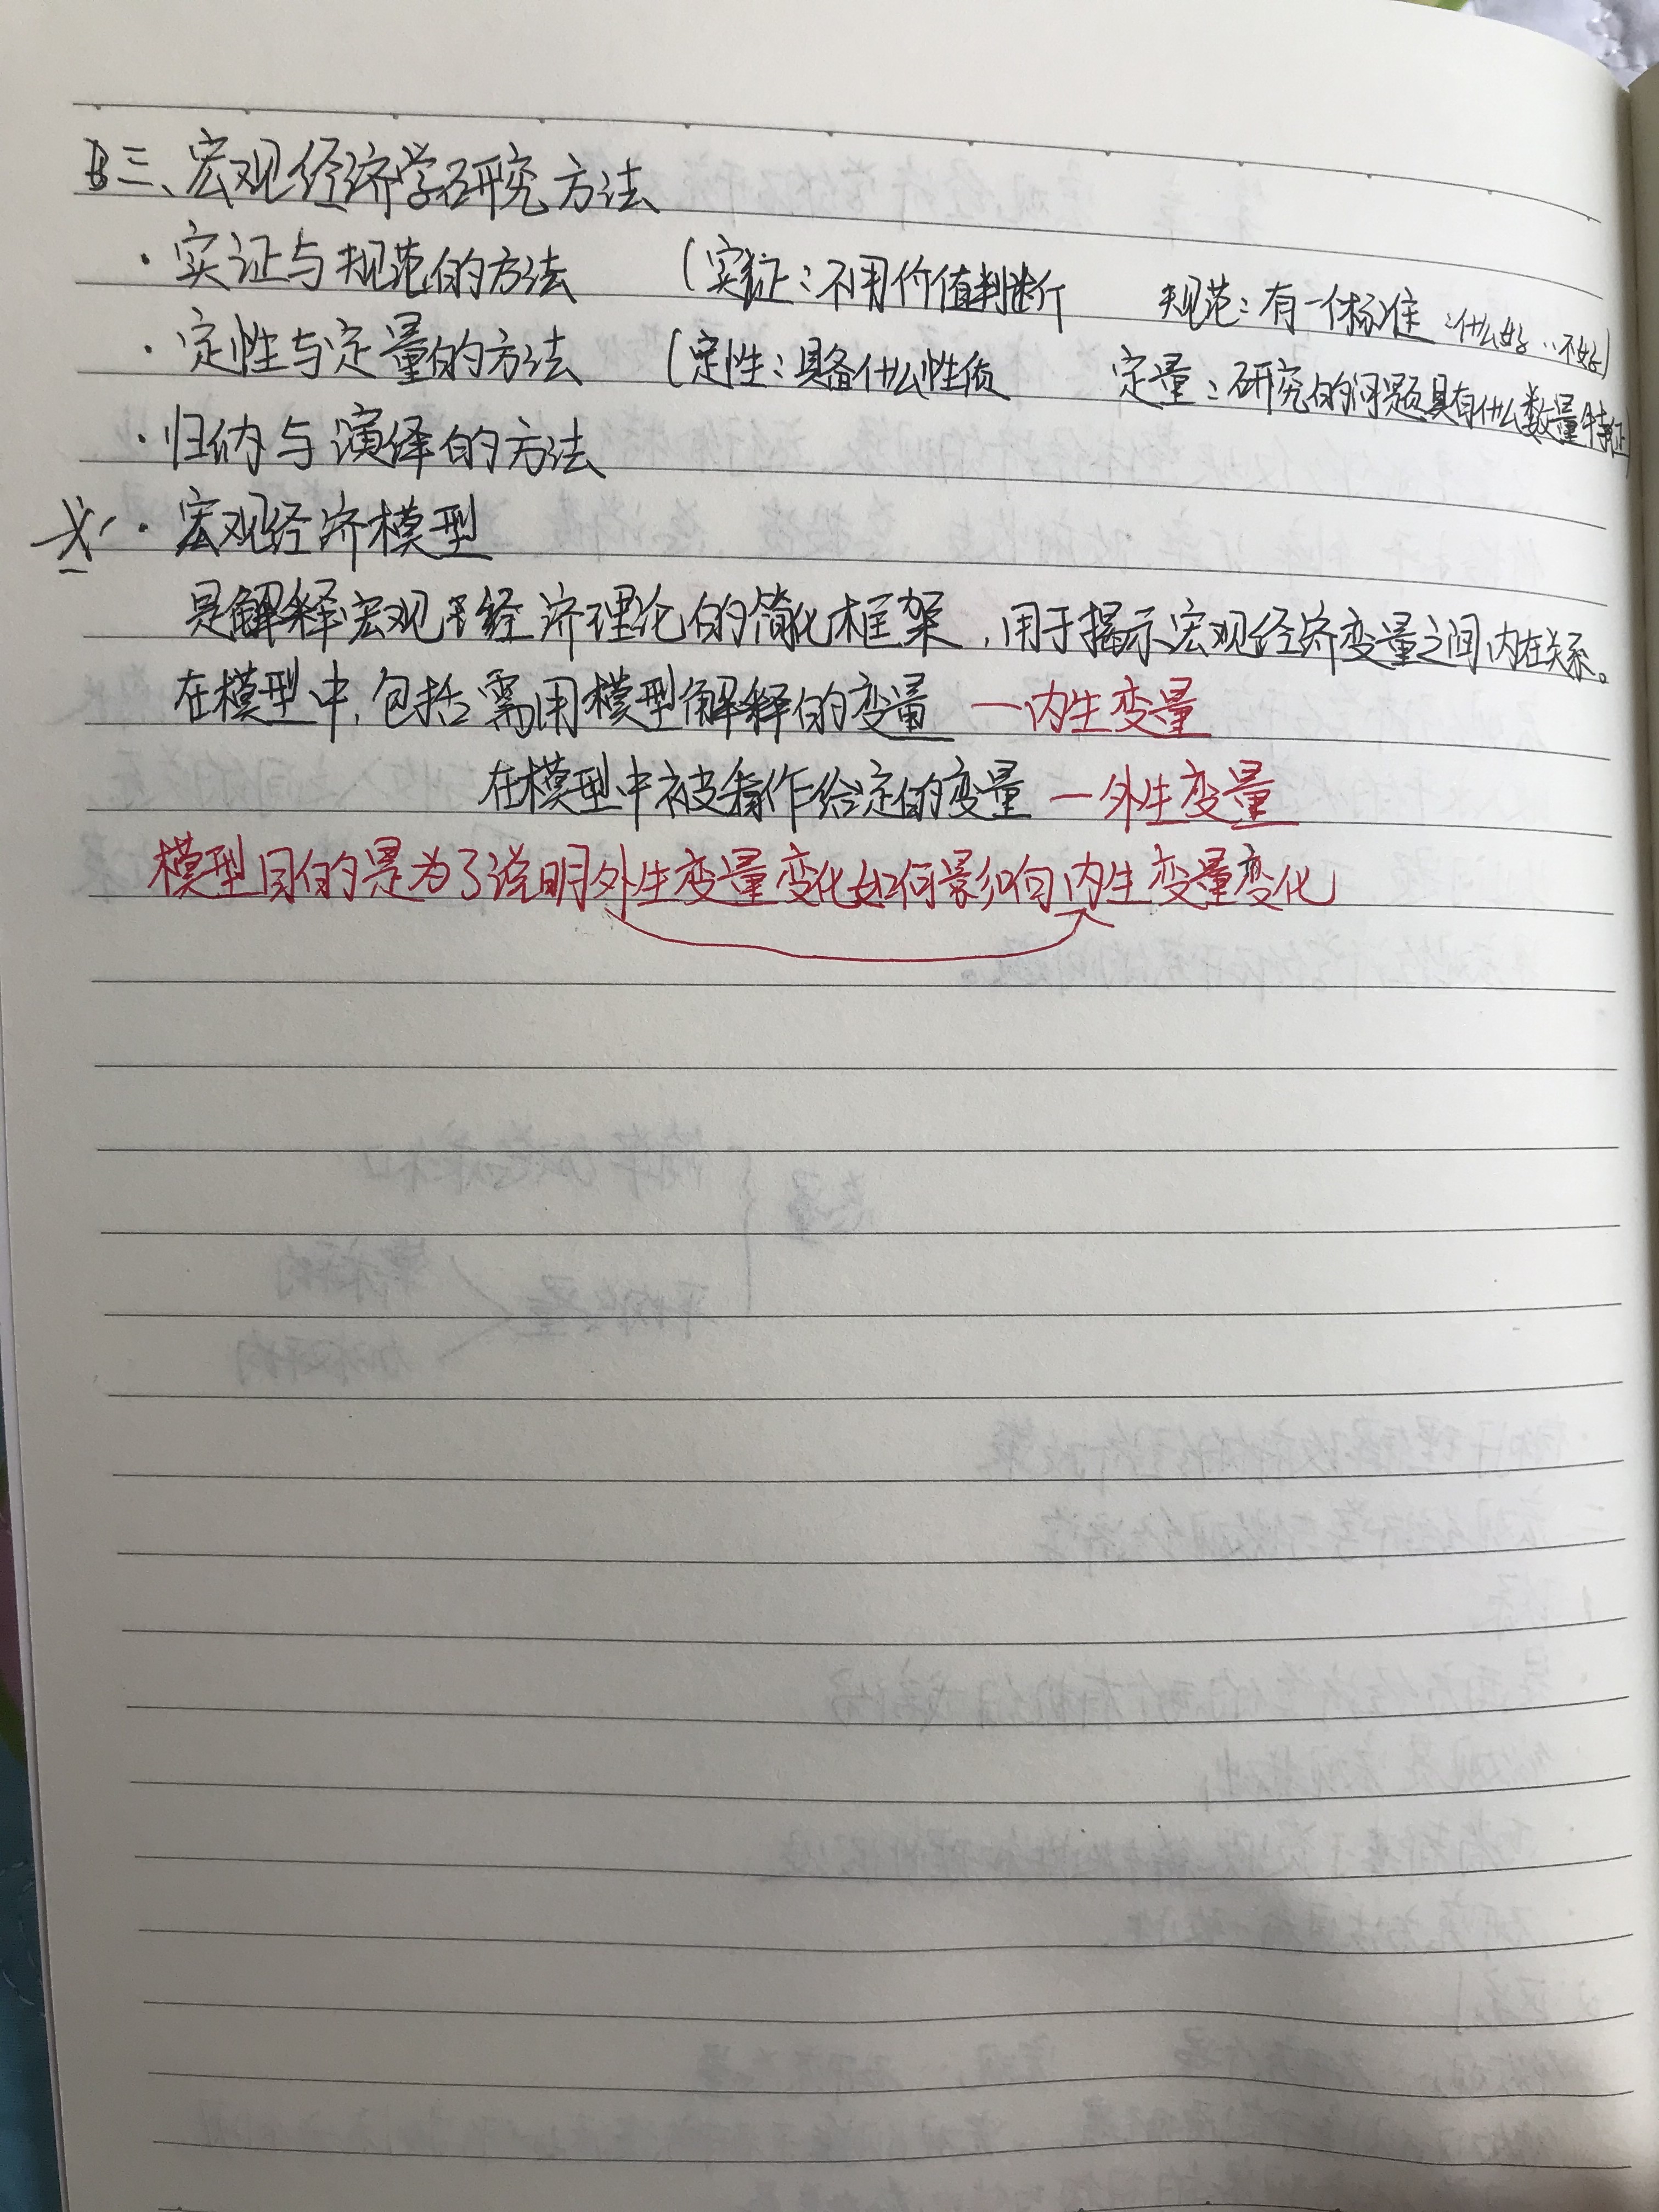 三、宏观经济学研究方法
·实证与规范的方法 (实证:不用价值判断 规范:有一个标准:什么好..不好)
·定性与定量的方法 (定性:具备什么性质 定量:研究的问题具有什么数量特征)
·归纳与演绎的方法
·宏观经济模型
是解释宏观经济理论的简化框架,用于揭示宏观经济变量之间内在关系。
在模型中,包括需用模型解释的变量 —内生变量
在模型中被看作给定的变量 —外生变量
模型目的是为了说明外生变量变化如何影响内生变量变化